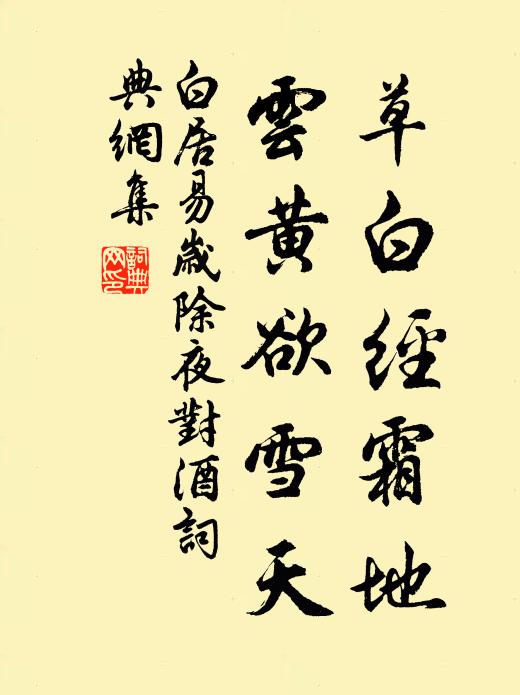 草白經霜地
雲黃欲雪天
白居易歲除夜對酒詞
典網集
詞典
网印